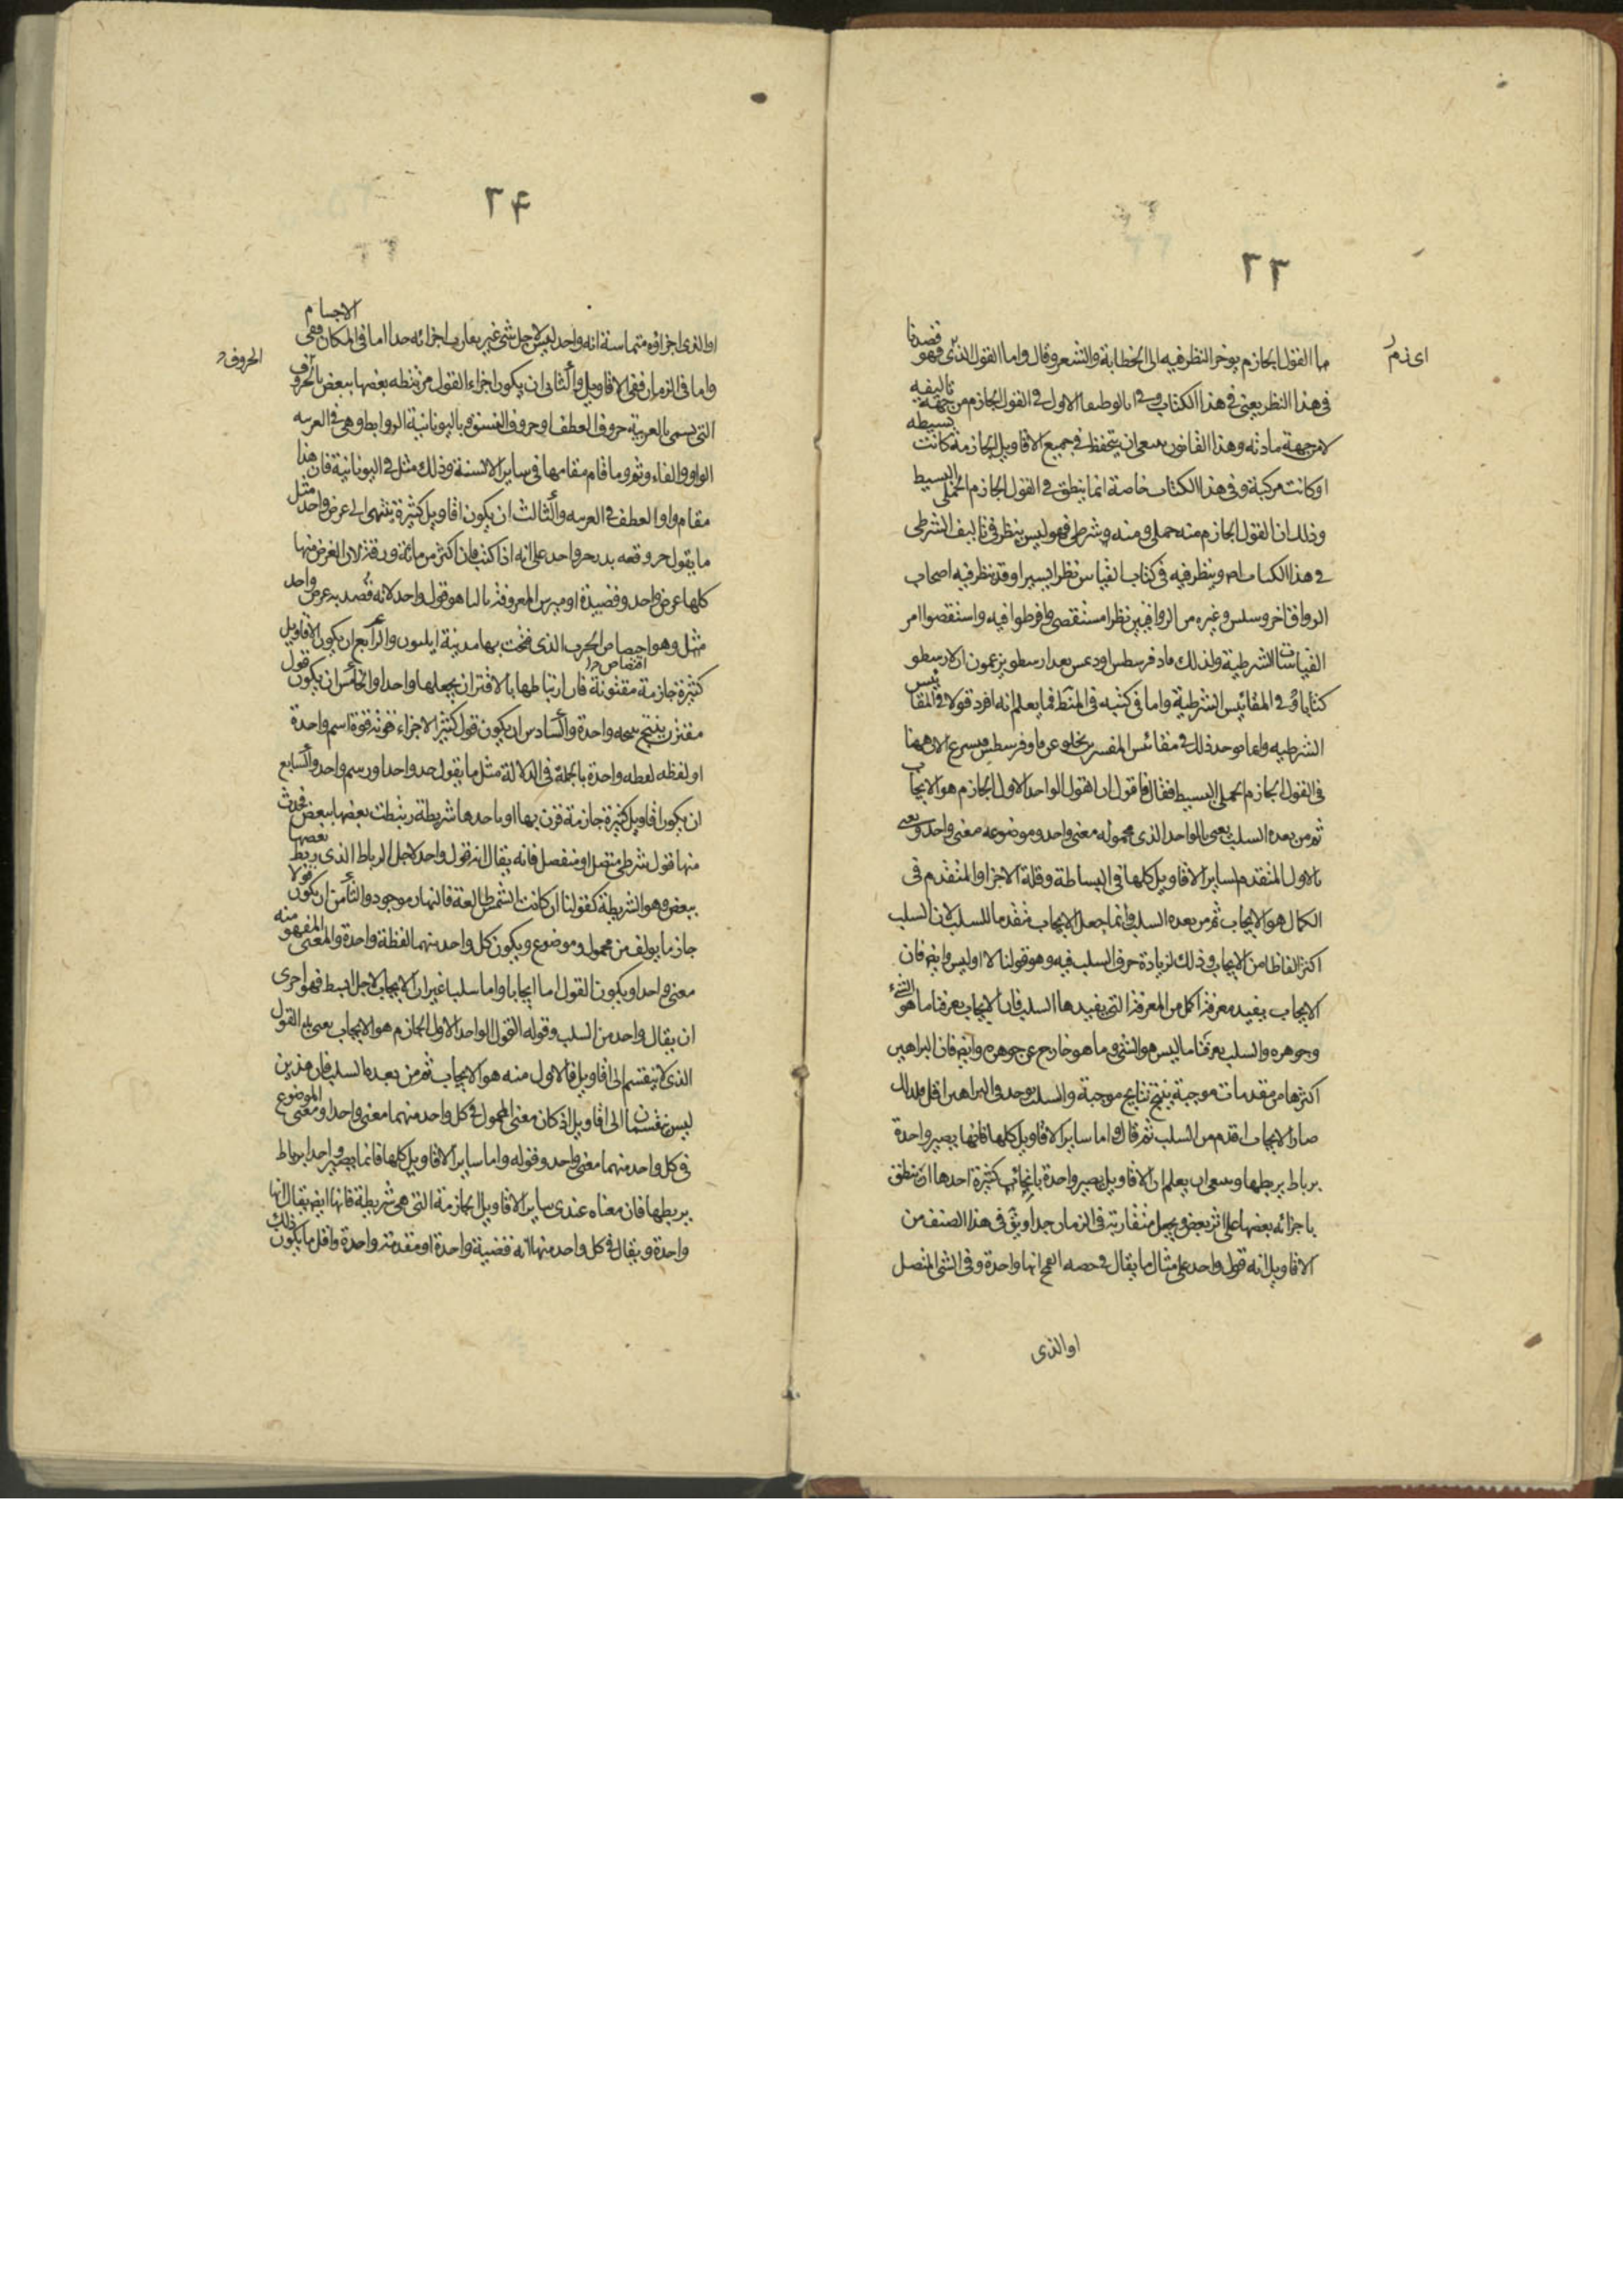 ٢٣
ما القول الجازم يوخر النظر فيه الى الخطابة والشعر وقال واما القول الذى قصدنا فهو
اى ندم
فى هذا النظر يعنى فى هذا الكتاب وفى الاول فى القول الجازم من جهة تاليفه
لا من جهة مادته وهذا القانون ان يتحفظ فى جميع الاقاويل الجازمة كانت بسيطة
او كانت مركبة وفى هذا الكتاب خاصة انما ينطق فى القول الجازم الحملى البسيط
وذلك ان القول الجازم منه حملى ومنه شرطى فهو ليس ينظر فى تاليف الشرطى
فى هذا الكتاب وينظر فيه فى كتاب القياس نظرا يسيرا وقد نظر فيه اصحاب
الرواق اخروسلس وغيره من الرواقيين نظرا مستقصى وافرطوا فيه واستقصوا امر
القياسات الشرطية ولذلك بعد ارسطو يزعمون ان لارسطو
كتابا فى المقائيس الشرطية واما فى كتبه فى المنطق فما يعلم انه افرد قولا فى المقائيس
الشرطيه وانما يوجد ذلك فى مقائس المفسرين
فى القول الجازم الحملى البسيط فقال فاقول ان القول الواحد الاول الجازم هو الايجاب
ثم من بعده السلب يعنى بالواحد الذى محموله معنى واحد وموضوعه معنى واحد ويعنى
بالاول المتقدم لساير الاقاويل كلها فى البساطة وقلة الاجزا والمتقدم فى
الكمال هو الايجاب ثم من بعده السلب وانما جعل الايجاب متقدما للسلب لان السلب
اكثر الفاظا من الايجاب وذلك لزيادة حرف السلب فيه وهو قولنا لا او ليس وايضا فان
الايجاب يفيد معرفة اكمل من المعرفة التى يفيدها السلب فان الايجاب يعرفنا ما هو الشىء
وجوهره والسلب يعرفنا ما ليس هو الشىء وما هو خارج عن جوهره وايضا فان البراهين
اكثرها من مقدمات موجبة ينتج نتايج موجبة والسلب يوجد فى البراهين اقل فلذلك
صار الايجاب اقدم من السلب ثم قال واما ساير الاقاويل كلها فانها يصير واحدة
برباط يربطها وينبغى ان يعلم ان الاقاويل يصير واحدة بانحاء كثيرة احدها ان ينطق
باجزائه بعضها على اثر بعض ويجعل متقاربة فى الزمان جدا ويق فى هذا الصنف من
الاقاويل انه قول واحد على مثال ما يقال فى انها واحدة وفى الشى المتصل
او الذى
٢۴
او الذى اجزاؤه متماسة انه واحد ليس لاجل شى غير تقارب اجزائه جدا اما فى المكان ففى الاجسام
واما فى الزمان ففى الاقاويل والثانى ان يكون اجزاء القول مرتبطه بعضها ببعض بالحروف
الحروف
التى يسمى بالعربية حروف العطف او حروف النسق وباليونانية الروابط وهى فى العربيه
الواو والفاء وثم وما قام مقامها فى ساير الالسنة وذلك مثل فى اليونانية فان هذا
مقام واو العطف فى العربيه والثالث ان يكون اقاويل كثيرة ينتهى الى غرض واحد مثل
ما يقول واحد على انه اذا كتب فان اكثر من مائة ورقة لان الغرض منها
كلها غرض واحد وقصيدة اوميرس المعروفة هو قول واحد لانه قصد به غرض واحد
مثل وهو اقتصاص الحرب الذى فتحت بها مدينة ايليون والرابع ان يكون الاقاويل
كثيرة جازمة مقترنة فان ارتباطها بالاقتران يجعلها واحدا والخامس ان يكون قول
مقترن ينتج نتيجه واحدة والسادس ان يكون قول كثير الاجزاء قوته قوة اسم واحدة
او لفظه لفظه واحدة بالجملة فى الدلالة مثل ما يقول حد واحد او رسم واحد والسابع
ان يكون اقاويل كثيرة جازمة قرن بها او باحدها شريطة ربطت بعضها ببعض فحدث
منها قول شرطى متصل او منفصل فانه يقال انه قول واحد لاجل الرباط الذى ربط بعضها
ببعض وهو الشريطة كقولنا ان كانت الشمس طالعة فالنهار موجود والثامن ان يكون قولا
جازما يولف من محمول وموضوع ويكون كل واحد منهما لفظة واحدة والمعنى المفهوم منه
معنى واحد ويكون القول اما ايجابا واما سلبا غير ان الايجاب لاجل ابسط فهو احرى
ان يقال واحد من السلب وقوله القول الواحد الاول الجازم هو الايجاب يعنى به القول
الذى لا ينقسم الى اقاويل فالاول منه هو الايجاب ثم من بعده السلب فان هذين
ليس ينقسمان الى اقاويل اذ كان معنى المحمول فى كل واحد منهما معنى واحدا ومعنى الموضوع
فى كل واحد منهما معنى واحد وقوله واما ساير الاقاويل كلها فانما يصير واحدا برباط
يربطها فان معناه عندى ساير الاقاويل الجازمة التى هى شريطة فانها ايضا يقال انها
واحدة ويقال فى كل واحد منها انه قضية واحدة او مقدمة واحدة واقل ما يكون ذلك